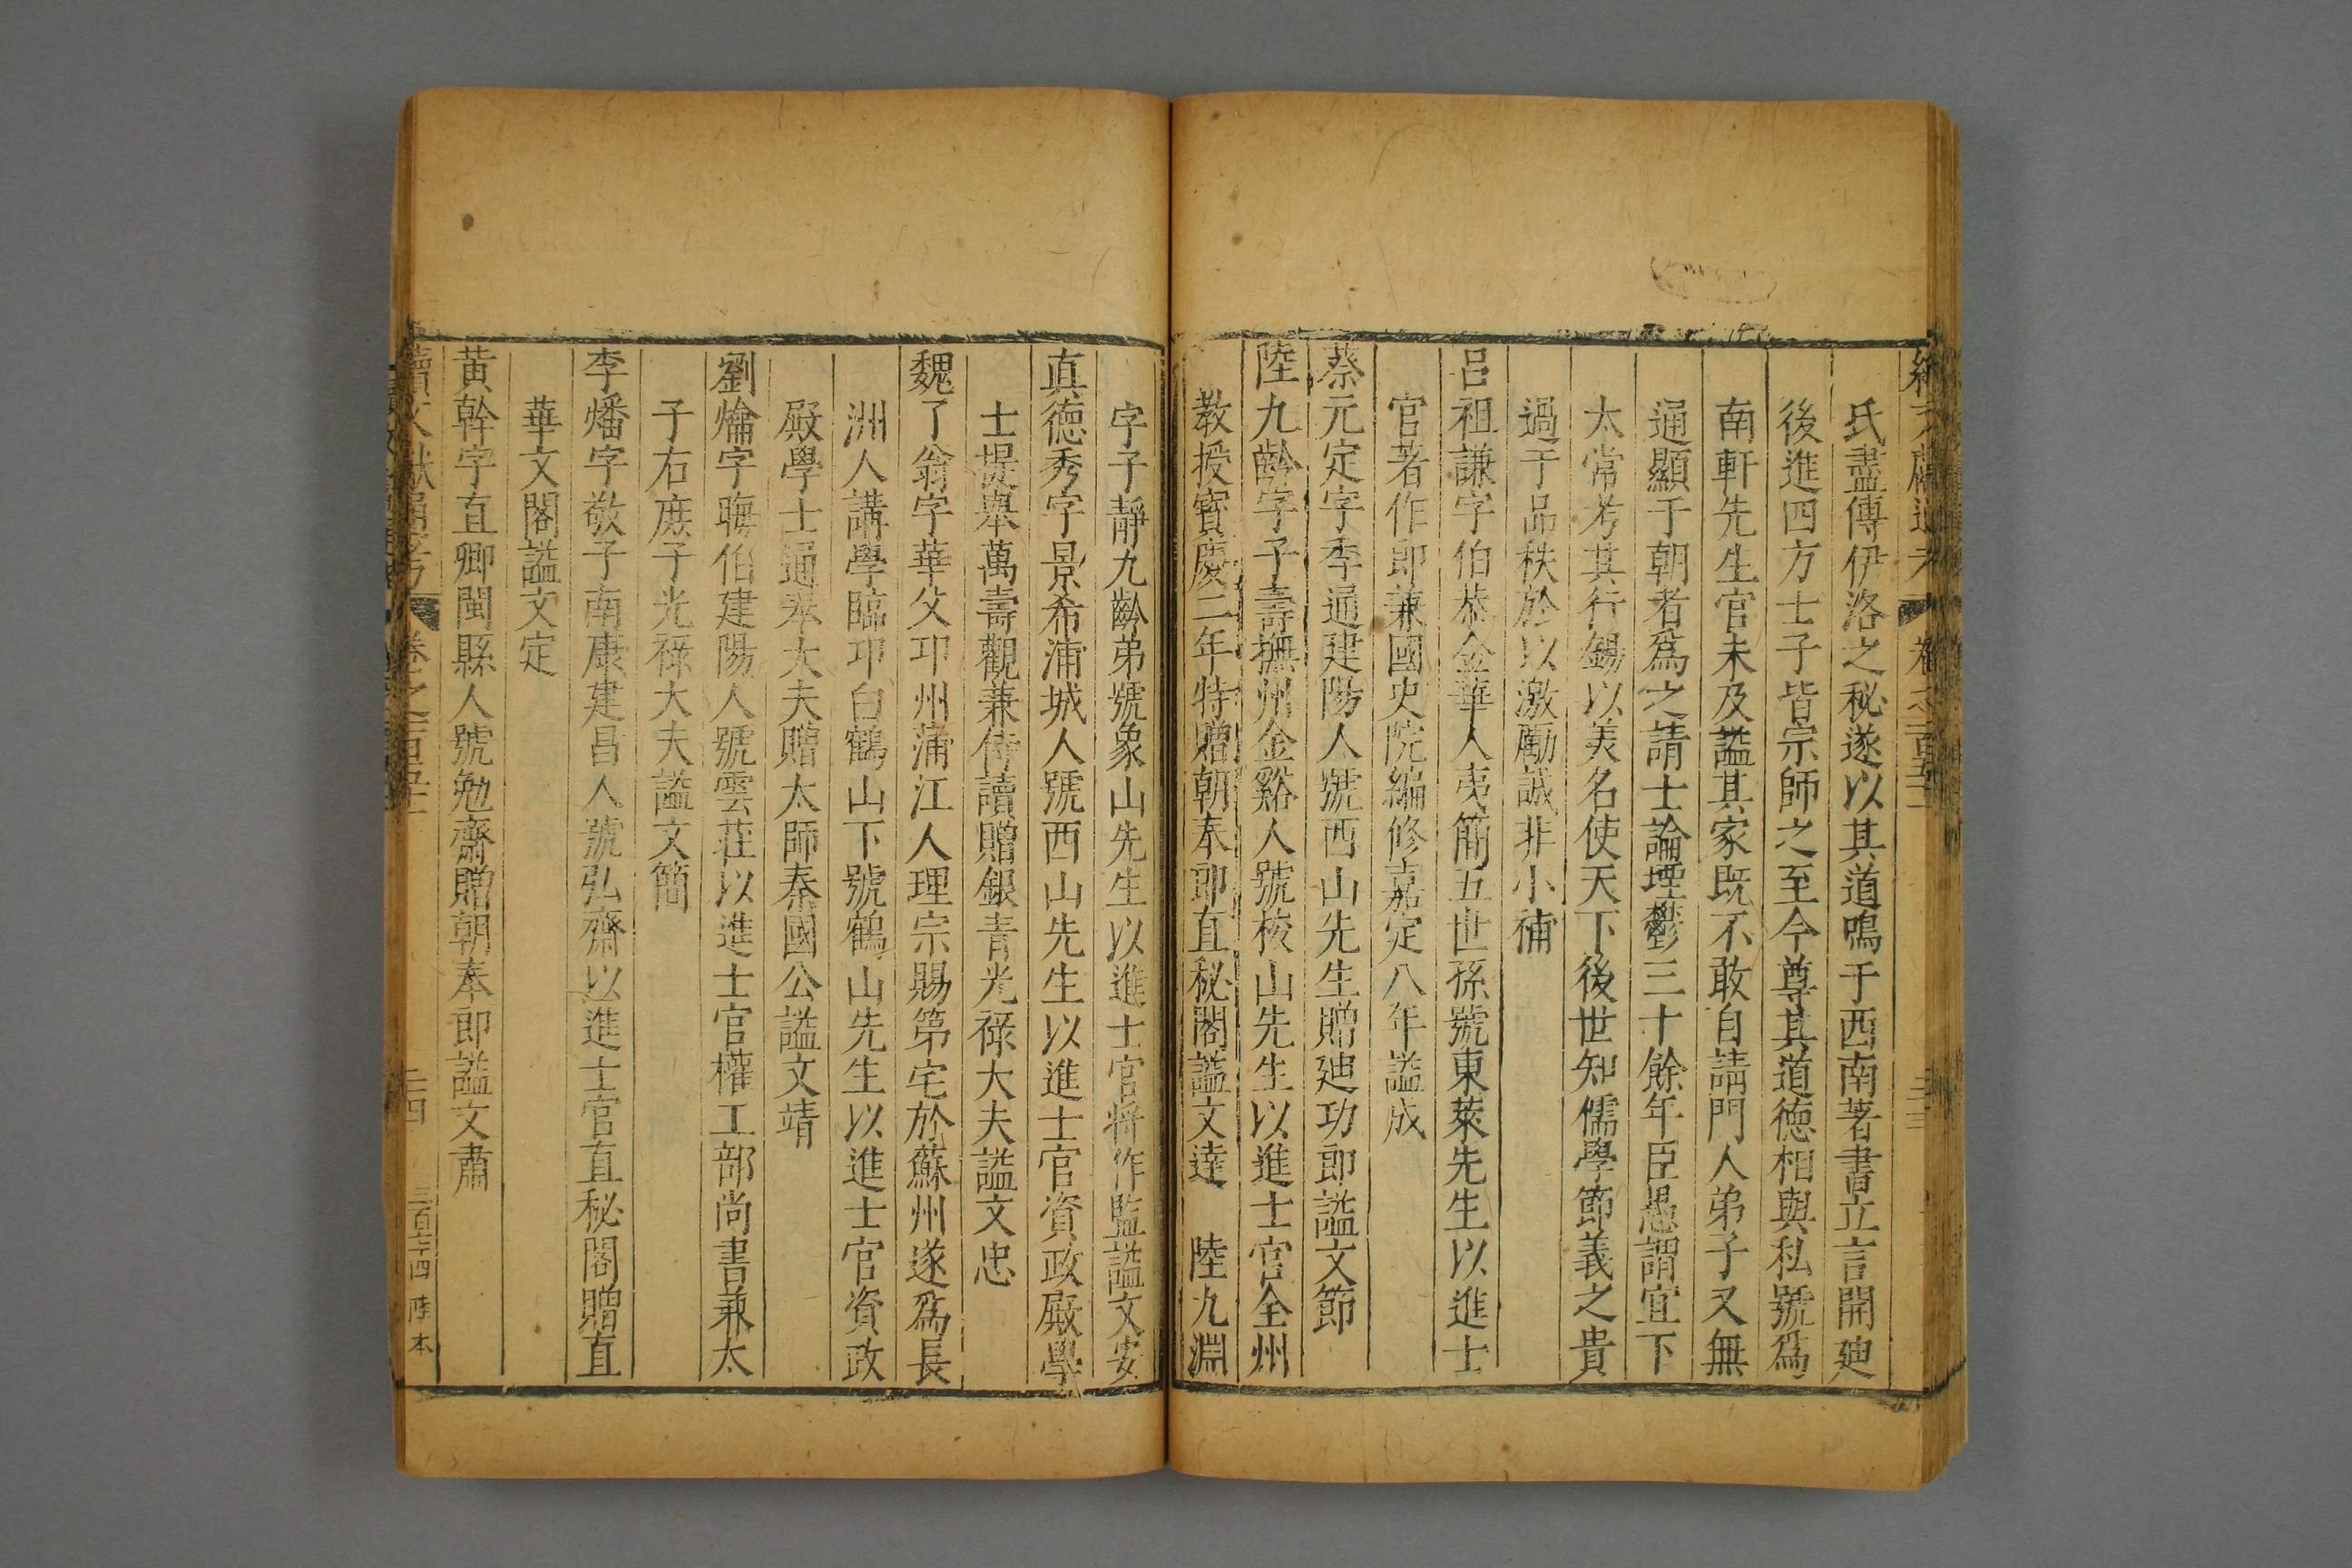 氏盡傳伊洛之秘遂以其道鳴于西南著書立言開廸
後進四方士子皆宗師之至今尊其道德相與私號爲
南軒先生官未及謚其家既不敢自請門人弟子又無
通顯于朝者爲之請士論堙鬱三十餘年臣愚謂宜下
太常考其行錫以美名使天下後世知儒學節義之貴
過于品秩於以激勵誠非小補
呂祖謙字伯恭金華人夷簡五世孫號東萊先生以進士
官著作郎兼國史院編修嘉定八年謚成
蔡元定字季通建陽人號西山先生贈廸功郎謚文節
陸九齡字子壽撫州金谿人號梭山先生以進士官全州
教授寳慶二年特贈朝奉郎直秘閣謚文達　陸九淵
字子靜九齡弟號象山先生以進士官將作監謚文安
真德秀字景希浦城人號西山先生以進士官資政殿學
士提舉萬壽觀兼侍讀贈銀青光祿大夫謚文忠
魏了翁字華父邛州蒲江人理宗賜第宅於蘇州遂爲長
洲人講學臨邛白鶴山下號鶴山先生以進士官資政
殿學士通奉大夫贈太師秦國公謚文靖
劉爚字晦伯建陽人號雲莊以進士官權工部尚書兼太
子右庶子光祿大夫謚文簡
李燔字敬子南康建昌人號弘齋以進士官直秘閣贈直
華文閣謚文定
黃幹字直卿閩縣人號勉齋贈朝奉郎謚文肅
續文獻通考 卷之一百五十二 二四 三百七十四 陸本